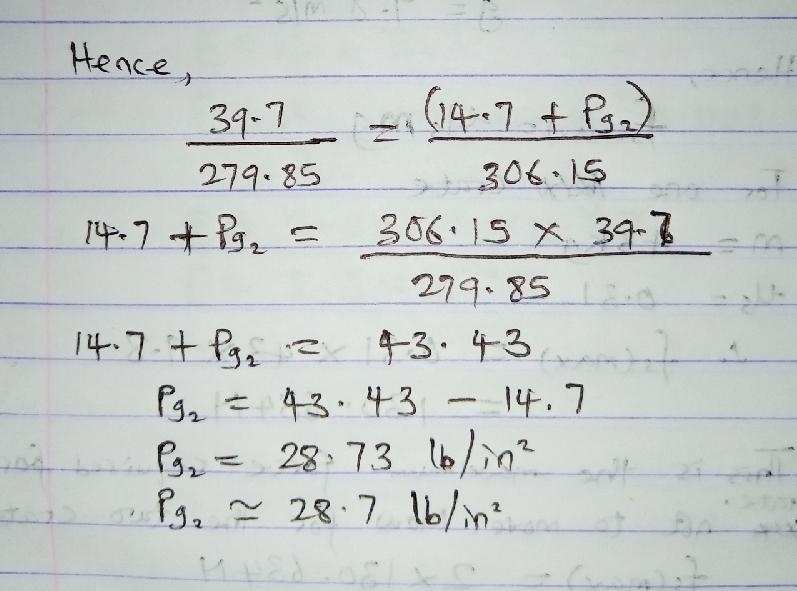 Hence,
39.7 / 279.85 = (14.7 + Pg₂) / 306.15
14.7 + Pg₂ = 306.15 × 39.7 / 279.85
14.7 + Pg₂ = 43.43
Pg₂ = 43.43 – 14.7
Pg₂ = 28.73 lb/in²
∴ Pg₂ ≃ 28.7 lb/in²